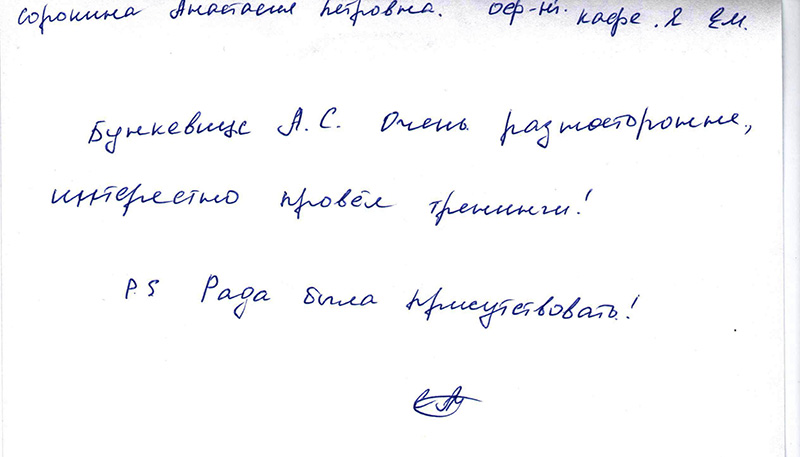 Сорокина Анастасия Петровна. оф-нт. кафе. Я ем.
Бункевищс А.С. Очень разносторонне,
интерестно провёл тренинги!
P.S Рада была присутствовать!